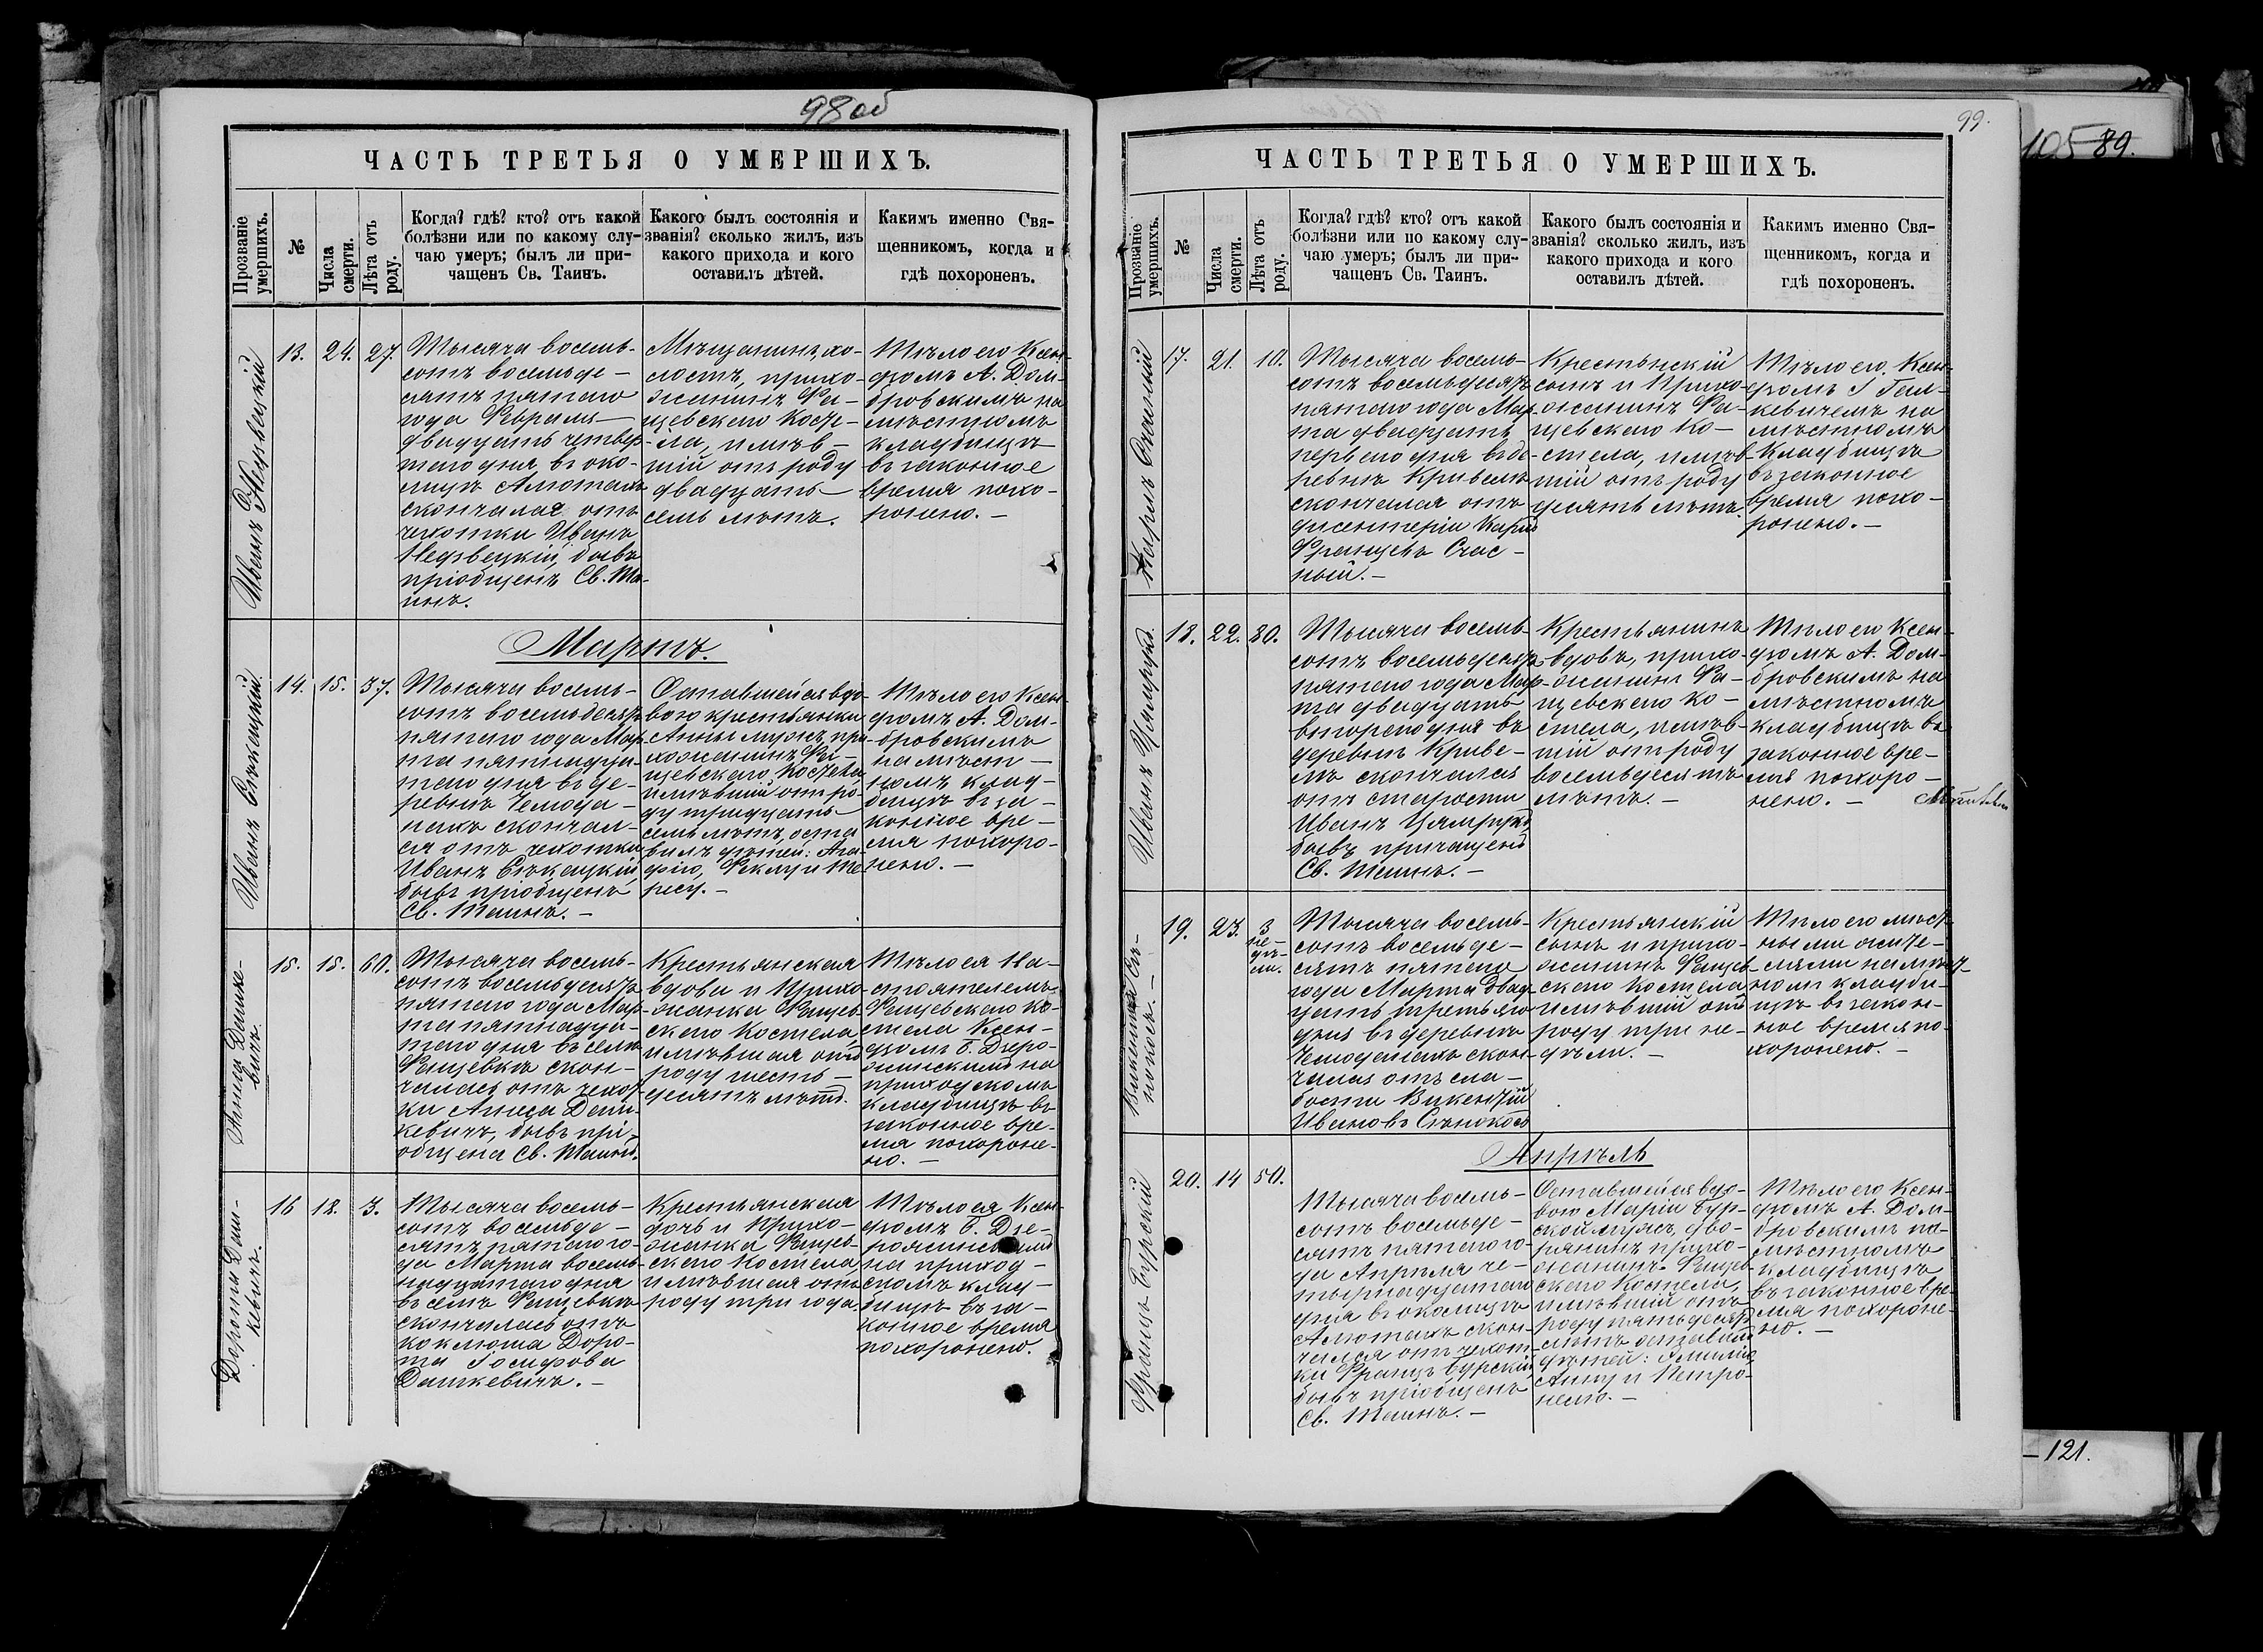 98 об
ЧАСТЬ ТРЕТЬЯ О УМЕРШИХЪ.
Прозваніе умершихъ.
№
Числа смерти.
Лѣта отъ роду.
Когда? гдѣ? кто? отъ какой
болѣзни или по какому слу-
чаю умеръ; былъ ли при-
чащенъ Св. Таинъ.
Какого былъ состоянія и
званія? сколько жилъ, изъ
какого прихода и кого
оставилъ дѣтей.
Какимъ именно Свя-
щенникомъ, когда и
гдѣ похороненъ.
Иванъ Недзвецкій
13.
24.
27.
Тысяча восемь-
сотъ восемьде-
сятъ пятаго
года Февраля
двадцать четвер-
таго дня въ око-
лицѣ Алютахъ
скончался отъ
чахотки Иванъ
Недзвецкій, бывъ
пріобщенъ Св. Та-
инъ.
Мѣщанинъ, хо-
лостъ, прихо-
жанинъ Фа-
щевскаго косте-
ла, имѣв-
шій отъ роду
двадцать
семь лѣтъ.
Тѣло его Ксен-
дзомъ А. Дом-
бровскимъ на
мѣстномъ
кладбищѣ
въ законное
время похо-
ронено. —
Мартъ.
14.
15.
37.
Тысяча восемь-
сотъ восемьдесятъ
пятаго года Мар-
та пятнадца-
таго дня въ де-
ревнѣ Чемода-
нахъ скончал-
ся отъ чахотки
Иванъ Сѣкацкій,
бывъ пріобщенъ
Св. Таинъ. —
Оставшейся вдо-
вою крестьянки
Анны мужъ, при-
хожанинъ Фа-
щевскаго костела
имѣвшій отъ ро-
ду тридцать
семь лѣтъ, оста-
вилъ дѣтей: Ага-
фію, Феклу и Те-
ресу. —
Тѣло его Ксен-
дзомъ А. Дом-
бровскимъ
на мѣст-
номъ клад-
бищѣ въ за-
конное вре-
мя похоро-
нено. —
Анна Дашке-
вичъ
15.
15.
60.
Тысяча восемь-
сотъ восемьдесятъ
пятаго года Мар-
та пятнадца-
таго дня въ селѣ
Фащевкѣ скон-
чалась отъ чахот-
ки Анна Даш-
кевичъ, бывъ прі-
общена Св. Таинъ.
Крестьянская
вдова и прихо-
жанка Фащев-
скаго костела,
имѣвшая отъ
роду шесть-
десятъ лѣтъ.
Тѣло ея На-
стоятелемъ
Фащевскаго ко-
стела Ксен-
дзомъ Б. Дзеро-
жинскимъ на
приходскомъ
кладбищѣ въ
законное вре-
мя похороне-
но. —
Дорота Даш-
кевичъ.
16
18.
3.
Тысяча восемь-
сотъ восемьде-
сятъ пятаго го-
да Марта восемь-
надцатаго дня
въ селѣ Фащевкѣ
скончалась отъ
коклюша Доро-
та Іосифова
Дашкевичъ. —
Крестьянская
дочь и прихо-
жанка Фащев-
скаго костела,
имѣвшая отъ
роду три года.
Тѣло ея Ксен-
дзомъ Б. Дзе-
рожинскимъ
на приход-
скомъ клад-
бищѣ въ за-
конное время
похоронено.
99.
ЧАСТЬ ТРЕТЬЯ О УМЕРШИХЪ.
Прозваніе умершихъ.
№
Числа смерти.
Лѣта отъ роду.
Когда? гдѣ? кто? отъ какой
болѣзни или по какому слу-
чаю умеръ; былъ ли при-
чащенъ Св. Таинъ.
Какого былъ состоянія и
званія? сколько жилъ, изъ
какого прихода и кого
оставилъ дѣтей.
Какимъ именно Свя-
щенникомъ, когда и
гдѣ похороненъ.
17.
21.
10.
Тысяча восемь-
сотъ восемьдесятъ
пятаго года Мар-
та двадцать
перваго дня въ де-
ревнѣ Кривелѣ
скончался отъ
дисентеріи Карлъ
Францевъ Счас-
ный. —
Крестьнскій
сынъ и прихо-
жанинъ Фа-
щевскаго ко-
стела, имѣв-
шій отъ роду
десять лѣтъ.
Тѣло его Ксен-
дзомъ
на
мѣстномъ
кладбищѣ
въ законное
время похо-
ронено. —
18.
22.
80.
Тысяча восемь-
сотъ восемьдесятъ
пятаго года Мар-
та двадцать
втораго дня въ
деревнѣ Криве-
лѣ скончался
отъ старости
Иванъ
бывъ причащенъ
Св. Таинъ. —
Крестьянинъ
вдовъ, прихо-
жанинъ Фа-
щевскаго ко-
стела, имѣв-
шій отъ роду
восемьдесятъ
лѣтъ. —
Тѣло его Ксен-
дзомъ А. Дом-
бровскимъ на
мѣстномъ
кладбищѣ въ
законное вре-
мя похоро-
нено. —
19.
23.
3
не-
дѣ-
ли.
Тысяча восемь-
сотъ восемьде-
сятъ пятаго
года Марта двад-
цать третьяго
дня въ деревнѣ
Чемоданахъ скон-
чался отъ сла-
бости Викентій
Ивановъ Сѣнокосъ
Крестьянскій
сынъ и прихо-
жанинъ Фащев-
скаго костела
имѣвшій отъ
роду три не-
дѣли. —
Тѣло его мѣст-
ными жите-
лями на мѣст-
номъ кладби-
щѣ въ закон-
ное время по-
хоронено. —
Апрѣль
Францъ Бурскій
20.
14
50.
Тысяча восемь-
сотъ восемьде-
сятъ пятаго го-
да Апрѣля че-
тырнадцатаго
дня въ околицѣ
Алютахъ скон-
чался отъ чахот-
ки Францъ Бурскій,
бывъ пріобщенъ
Св. Таинъ. —
Оставшейся вдо-
вою Маріи Бур-
ской мужъ, дво-
рянинъ прихо-
жанинъ Фащев-
скаго костела,
имѣвшій отъ
роду пятьдесятъ
лѣтъ оставилъ
дѣтей: Эмилію,
Анну и Петро-
нелю. —
Тѣло его Ксен-
дзомъ А. Дом-
бровскимъ на
мѣстномъ
кладбищѣ
въ законное вре-
мя похороне-
но. —
105-89.
-121.